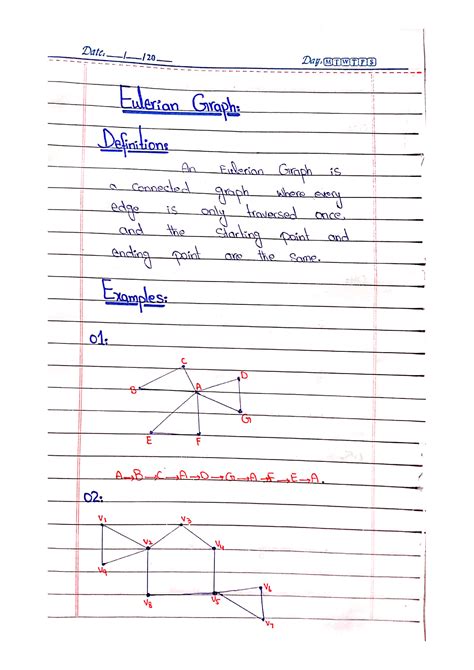 Date: __/__/20__ Day: M T W T F S
Eulerian Graph:
Definition:
An Eulerian Graph is
a connected graph where every
edge is only traversed once,
and the starting point and
ending point are the same.
Examples:
01:
C
D
B A
G
E F
A→B→C→A→D→G→A→F→E→A.
02:
V1 V3
V2 V4
V9
V8 V5 V6
V7